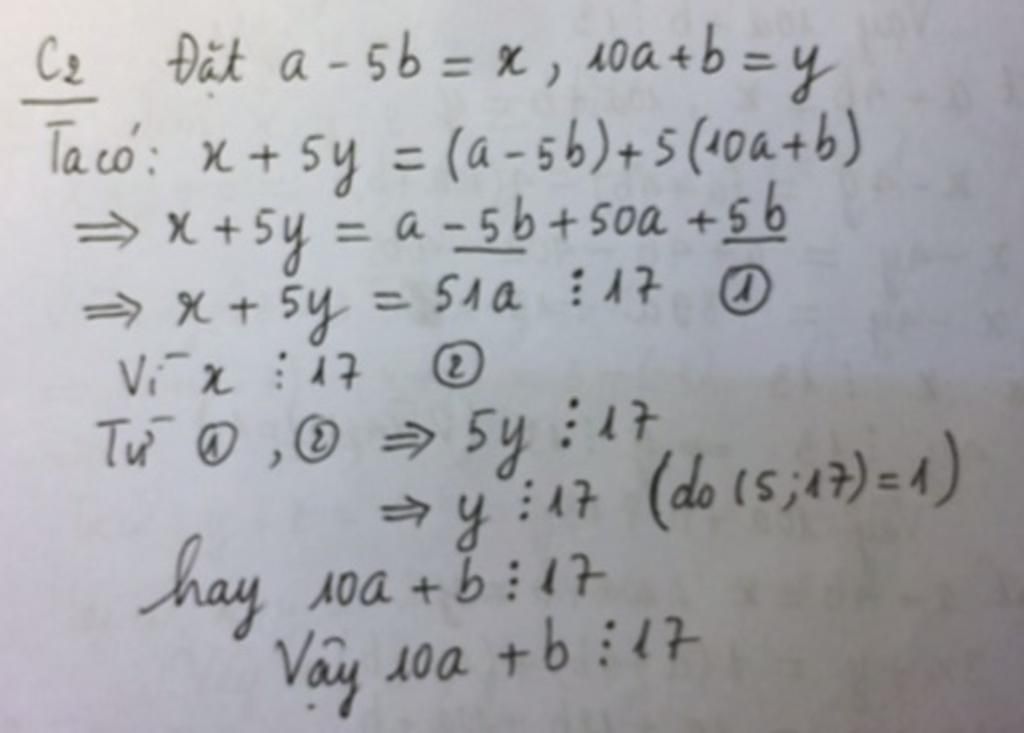 C2 Đặt a - 5b = x, 10a + b = y
Ta có: x + 5y = (a - 5b) + 5(10a + b)
⇒ x + 5y = a - 5b + 50a + 5b
⇒ x + 5y = 51a ⋮ 17 ①
Vì x ⋮ 17 ②
Từ ①, ② ⇒ 5y ⋮ 17
⇒ y ⋮ 17 (do (5; 17) = 1)
hay 10a + b ⋮ 17
Vậy 10a + b ⋮ 17